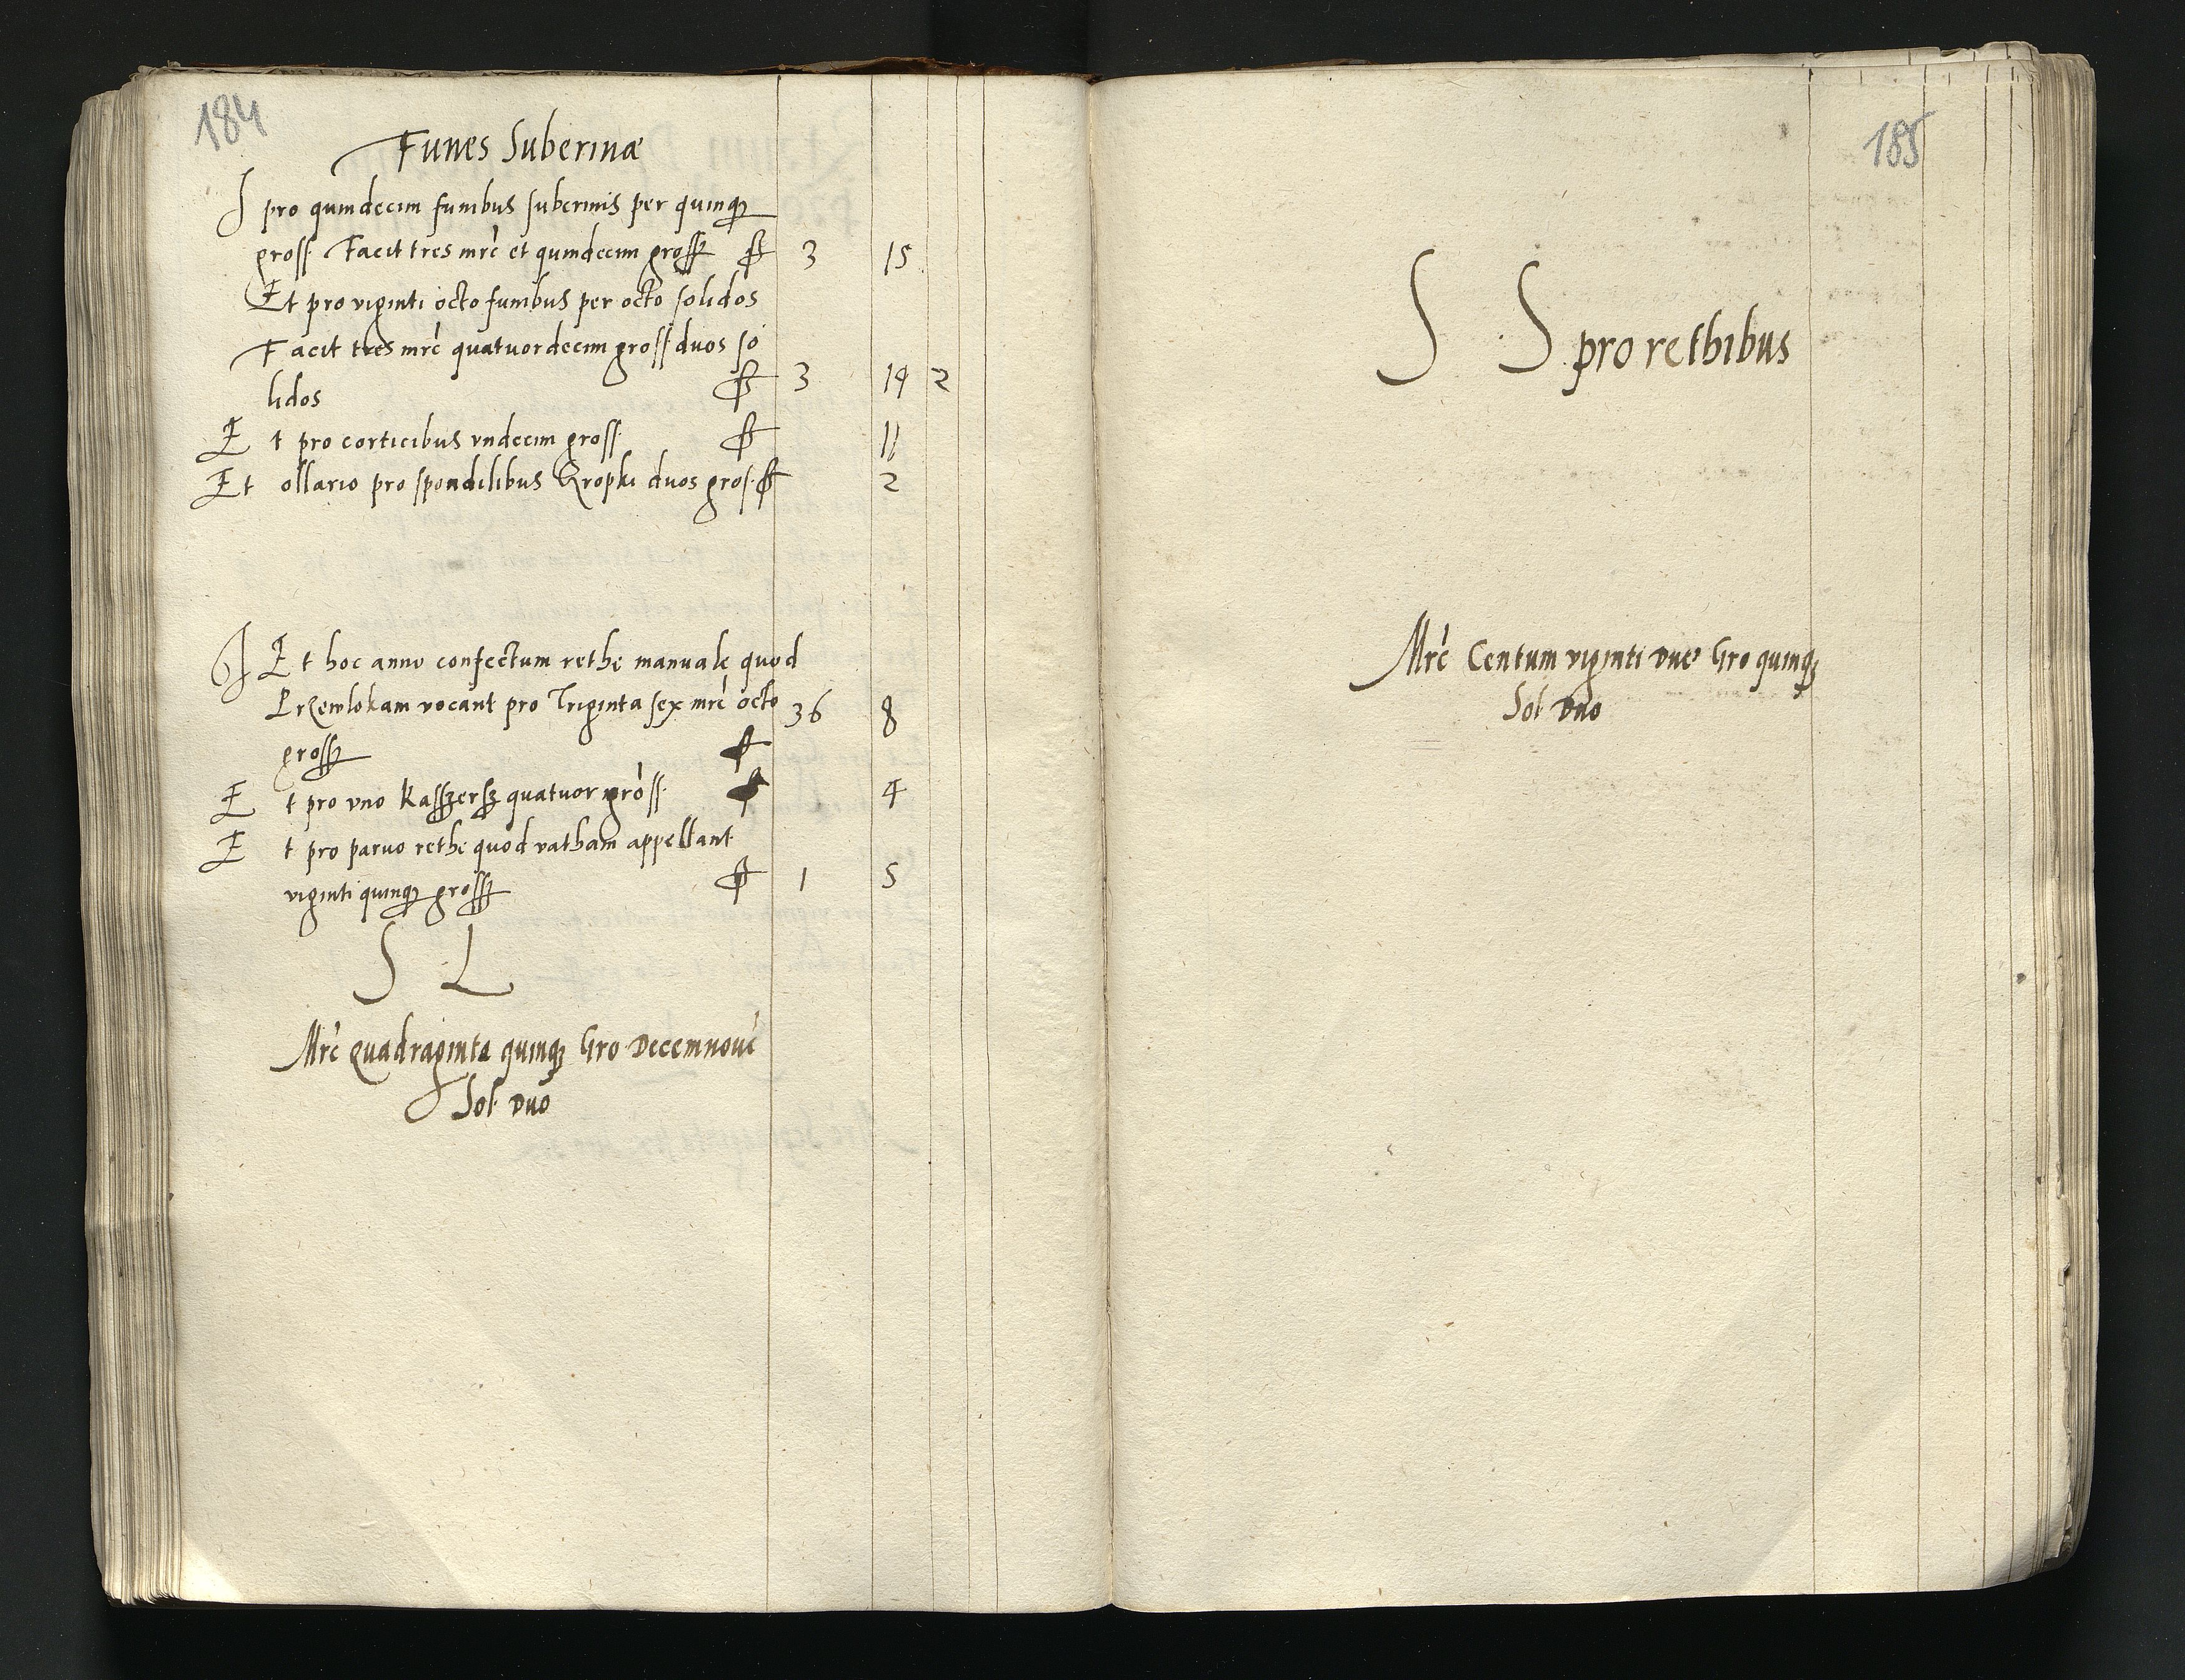 184
Funes Suberinæ
J pro quindecim funibus suberinis per quinq3
gross. Facit tres mrc et quindecim gross 3 15
Et pro viginti octo funibus per octo solidos
Facit tres mrc quatuordecim gross duos so
lidos 3 14 2
Et pro corticibus vndecim gross 11
Et ollario pro spondilibus Kropki duos gros. 2
Et hoc anno confectum rethe manuale quod
vocant pro Triginta sex mrc octo 36 8
gross
Et pro vno quatuor gross 4
Et pro paruo rethe quod vatham appellant
viginti quinq3 gross 1 5
S L
Mrc Quadraginta quinq3 Gro Decemnoue
Sol Duo
185
S S pro rethibus
Mrc Centum viginti Due Gro quinq3
Sol Duo